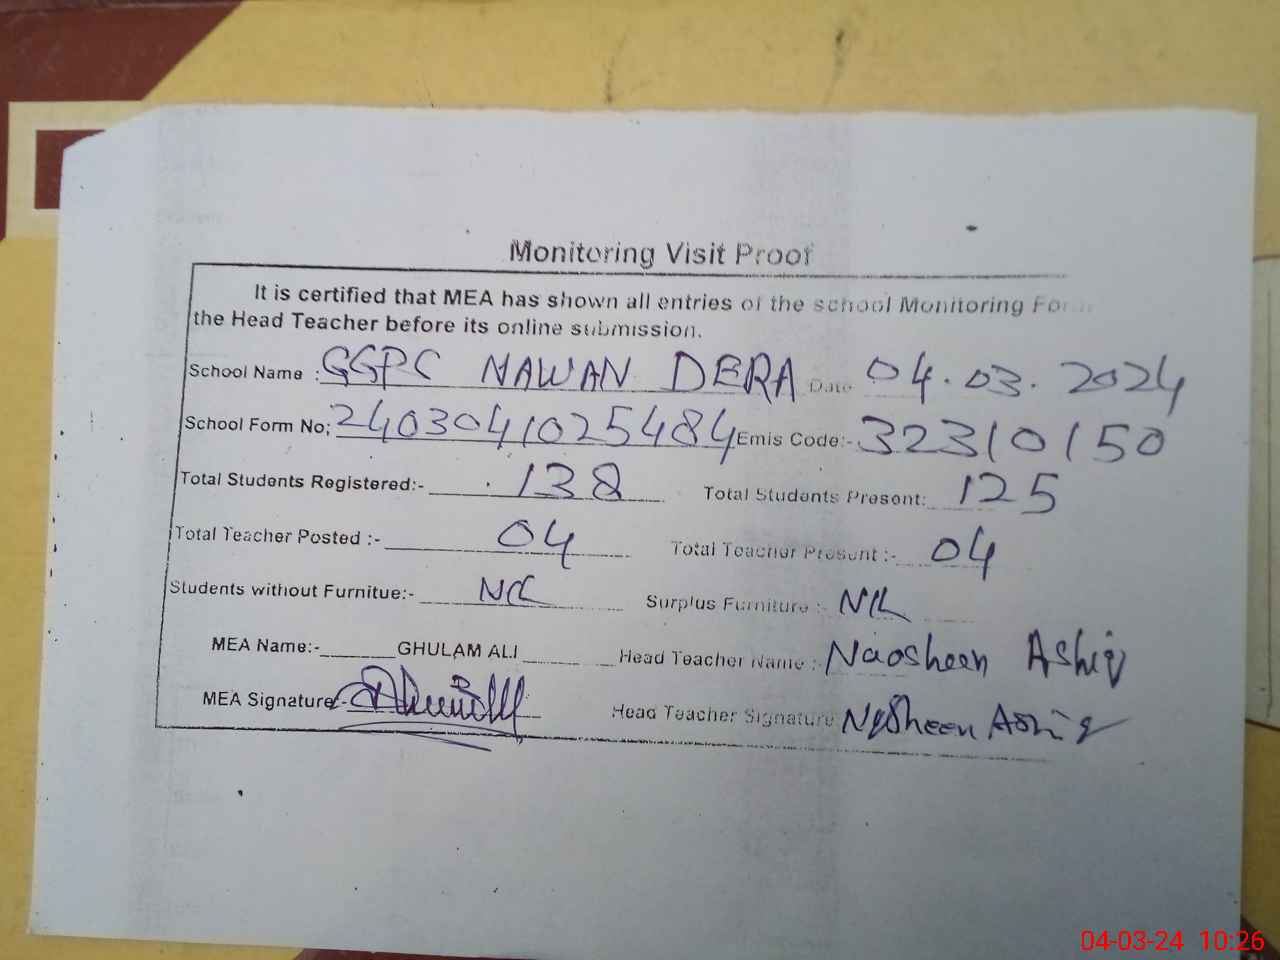 Monitoring Visit Proof
It is certified that MEA has shown all entries of the school Monitoring For
the Head Teacher before its online submission.
School Name : GGPC NAWAN DERA Date 04.03.2024
School Form No; 2403041025484 Emis Code:- 32310150
Total Students Registered:- 138 Total Students Present: 125
Total Teacher Posted :- 04 Total Teacher Present :- 04
Students without Furnitue:- NIL Surplus Furniture :- NIL
MEA Name:- GHULAM ALI Head Teacher Name :- Naosheen Ashiq
MEA Signature:- Head Teacher Signature: Nosheen Ashiq
04-03-24 10:26